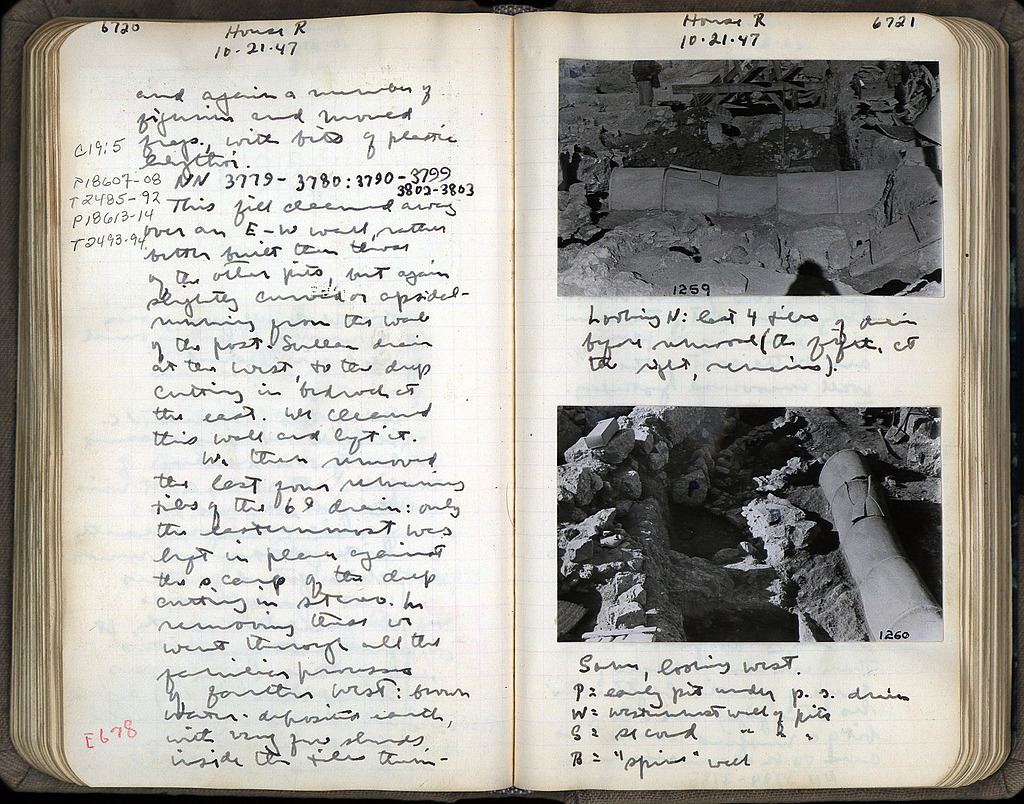 6720
House R
10-21-47
and again a number of
figurines and mould
frags., with bits of plastic
lekythoi.
C 19:5
P18607-08
T2485-92
P18613-14
T2493-94
NN 3779-3780: 3790-3799
3802-3803
This fill cleaned away
over an E-W wall, rather
better built than those
of the other pits, but again
slightly curved or apsidal -
running from the wall
of the post-Sullan drain
at the west, to the deep
cutting in bedrock at
the east. We cleaned
this wall and left it.
We then removed
the last four remaining
tiles of the 6th drain: only
the easternmost was
left in place against
the scarp of the deep
cutting in stereo. In
removing these we
went through all the
familiar processes
of farther west: brown
water-deposited earth,
with very few sherds,
inside the tiles them-
E678
House R
10-21-47
6721
1259
Looking N: last 4 tiles of drain
before removal (the fifth, at
the right, remains).
1260
Same, looking west.
P = early pit under p. s. drain
W = westernmost wall of pits
S = second " " "
B = "spine" wall